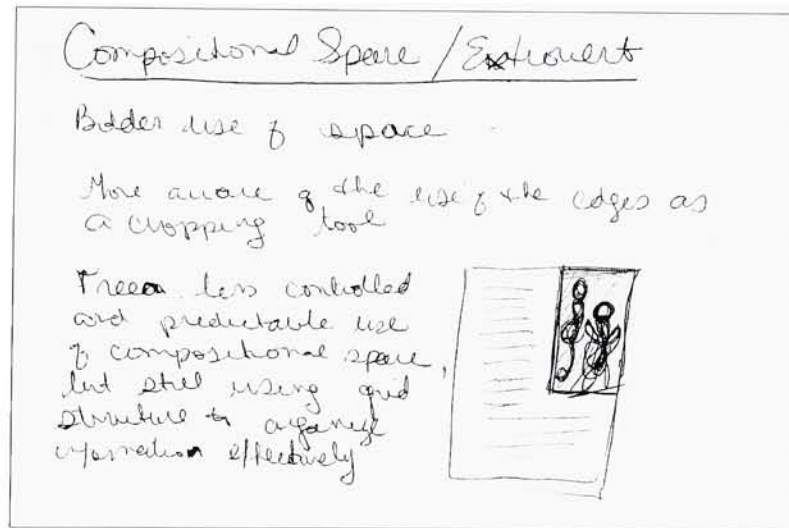 Compositional Space / Extrovert
Bolder use of space
More aware of the use of the edges as
a cropping tool
Freer less controlled
and predictable use
of compositional space,
but still using grid
structure to organize
information effectively